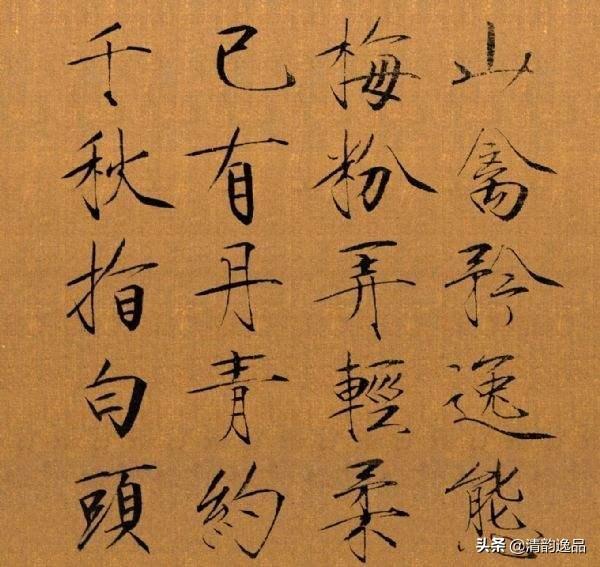 山禽矜逸態
梅粉弄輕柔
已有丹青約
千秋指白頭
头条 @清韵逸品